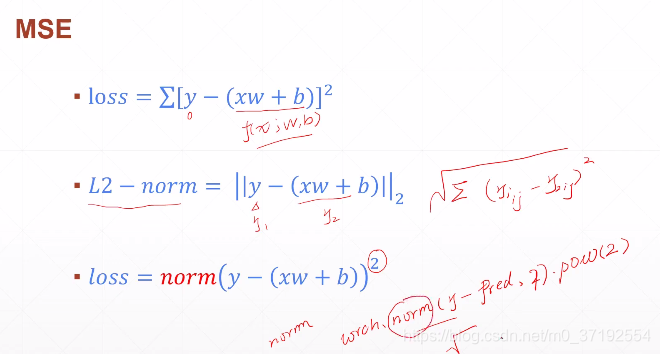 MSE
▪ loss = Σ[y − (xw + b)]²
f(x; w, b)
▪ L2 − norm = ||y − (xw + b)||₂
√Σ (y₁ᵢⱼ − y₂ᵢⱼ)²
y₁ y₂
▪ loss = norm(y − (xw + b))²
norm torch.norm(y − pred, 2).pow(2)
https://blog.csdn.net/m0_37192554